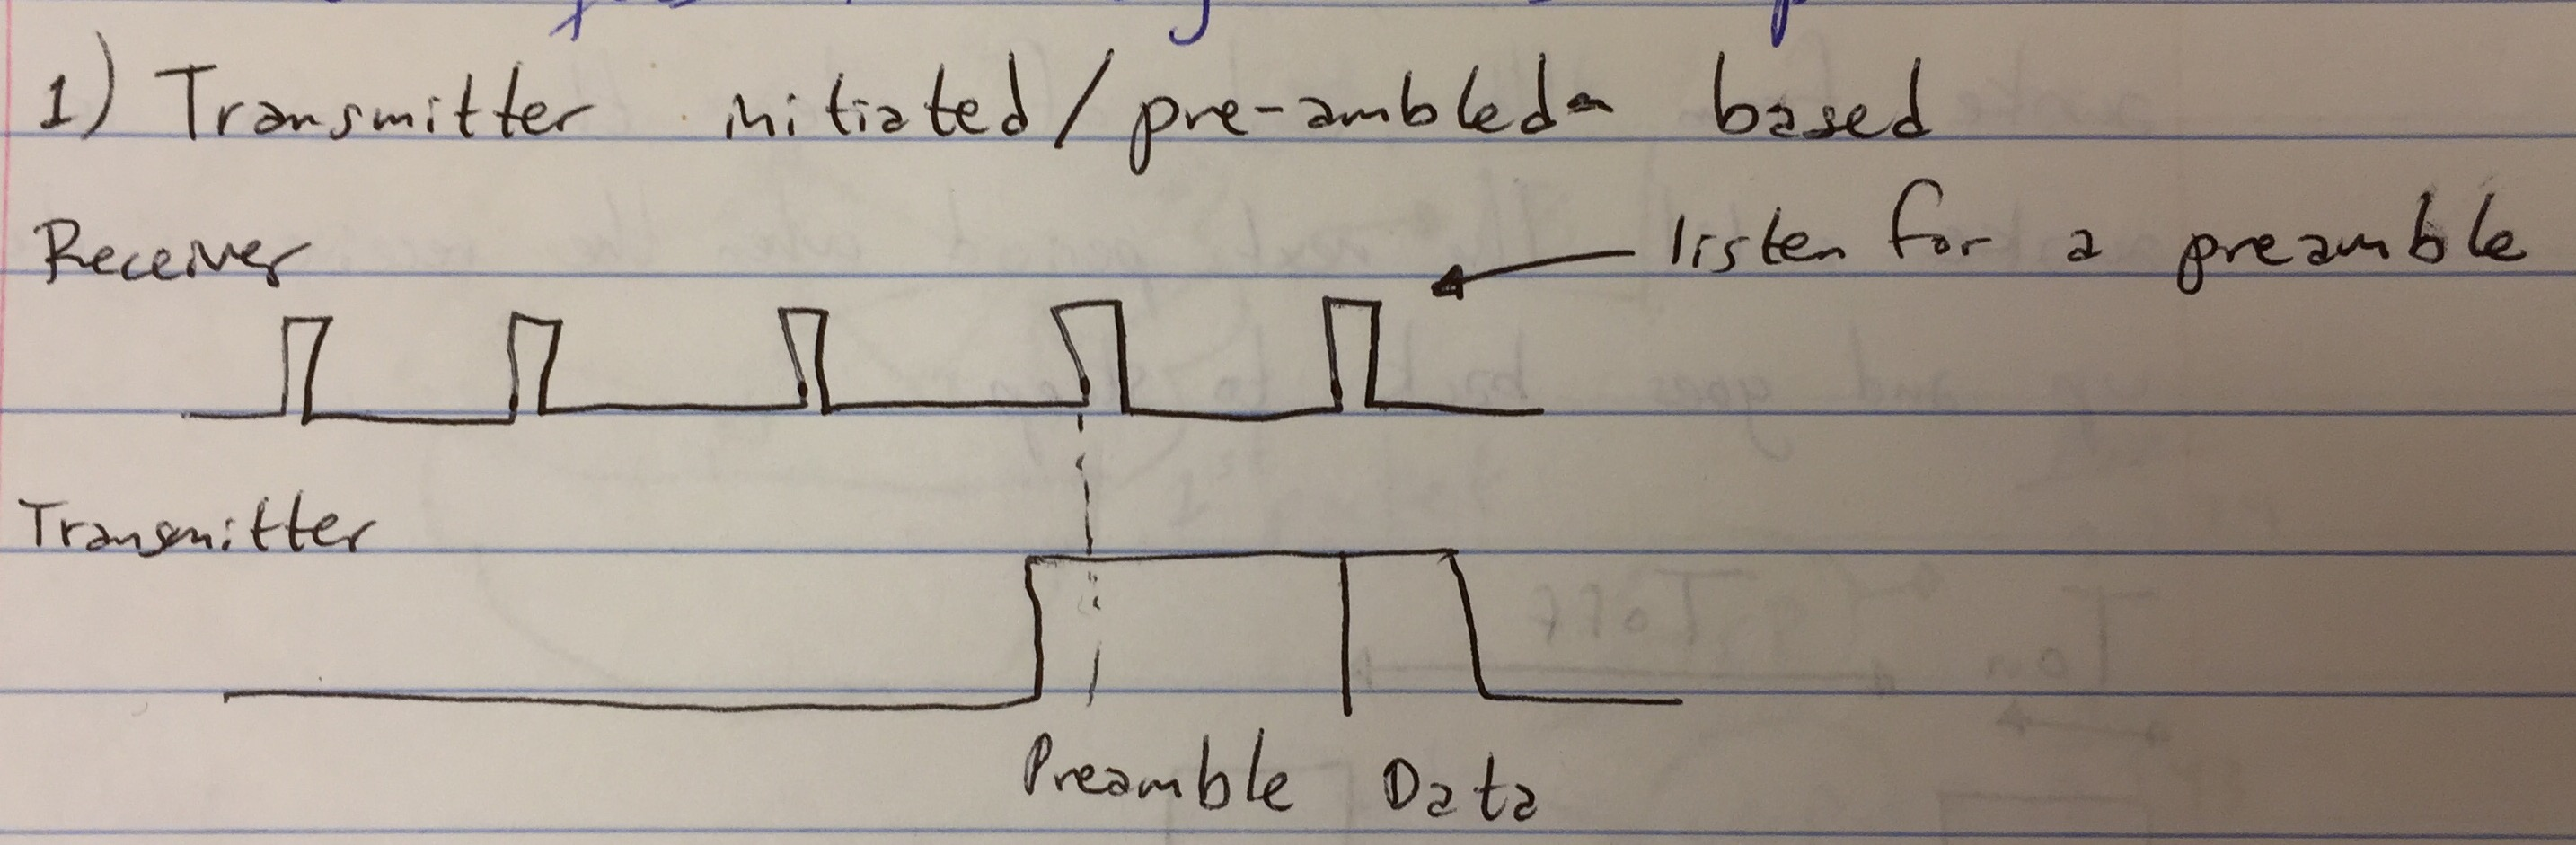 1) Transmitter initiated/pre-ambled- based
Receiver
listen for a preamble
Transmitter
Preamble Data